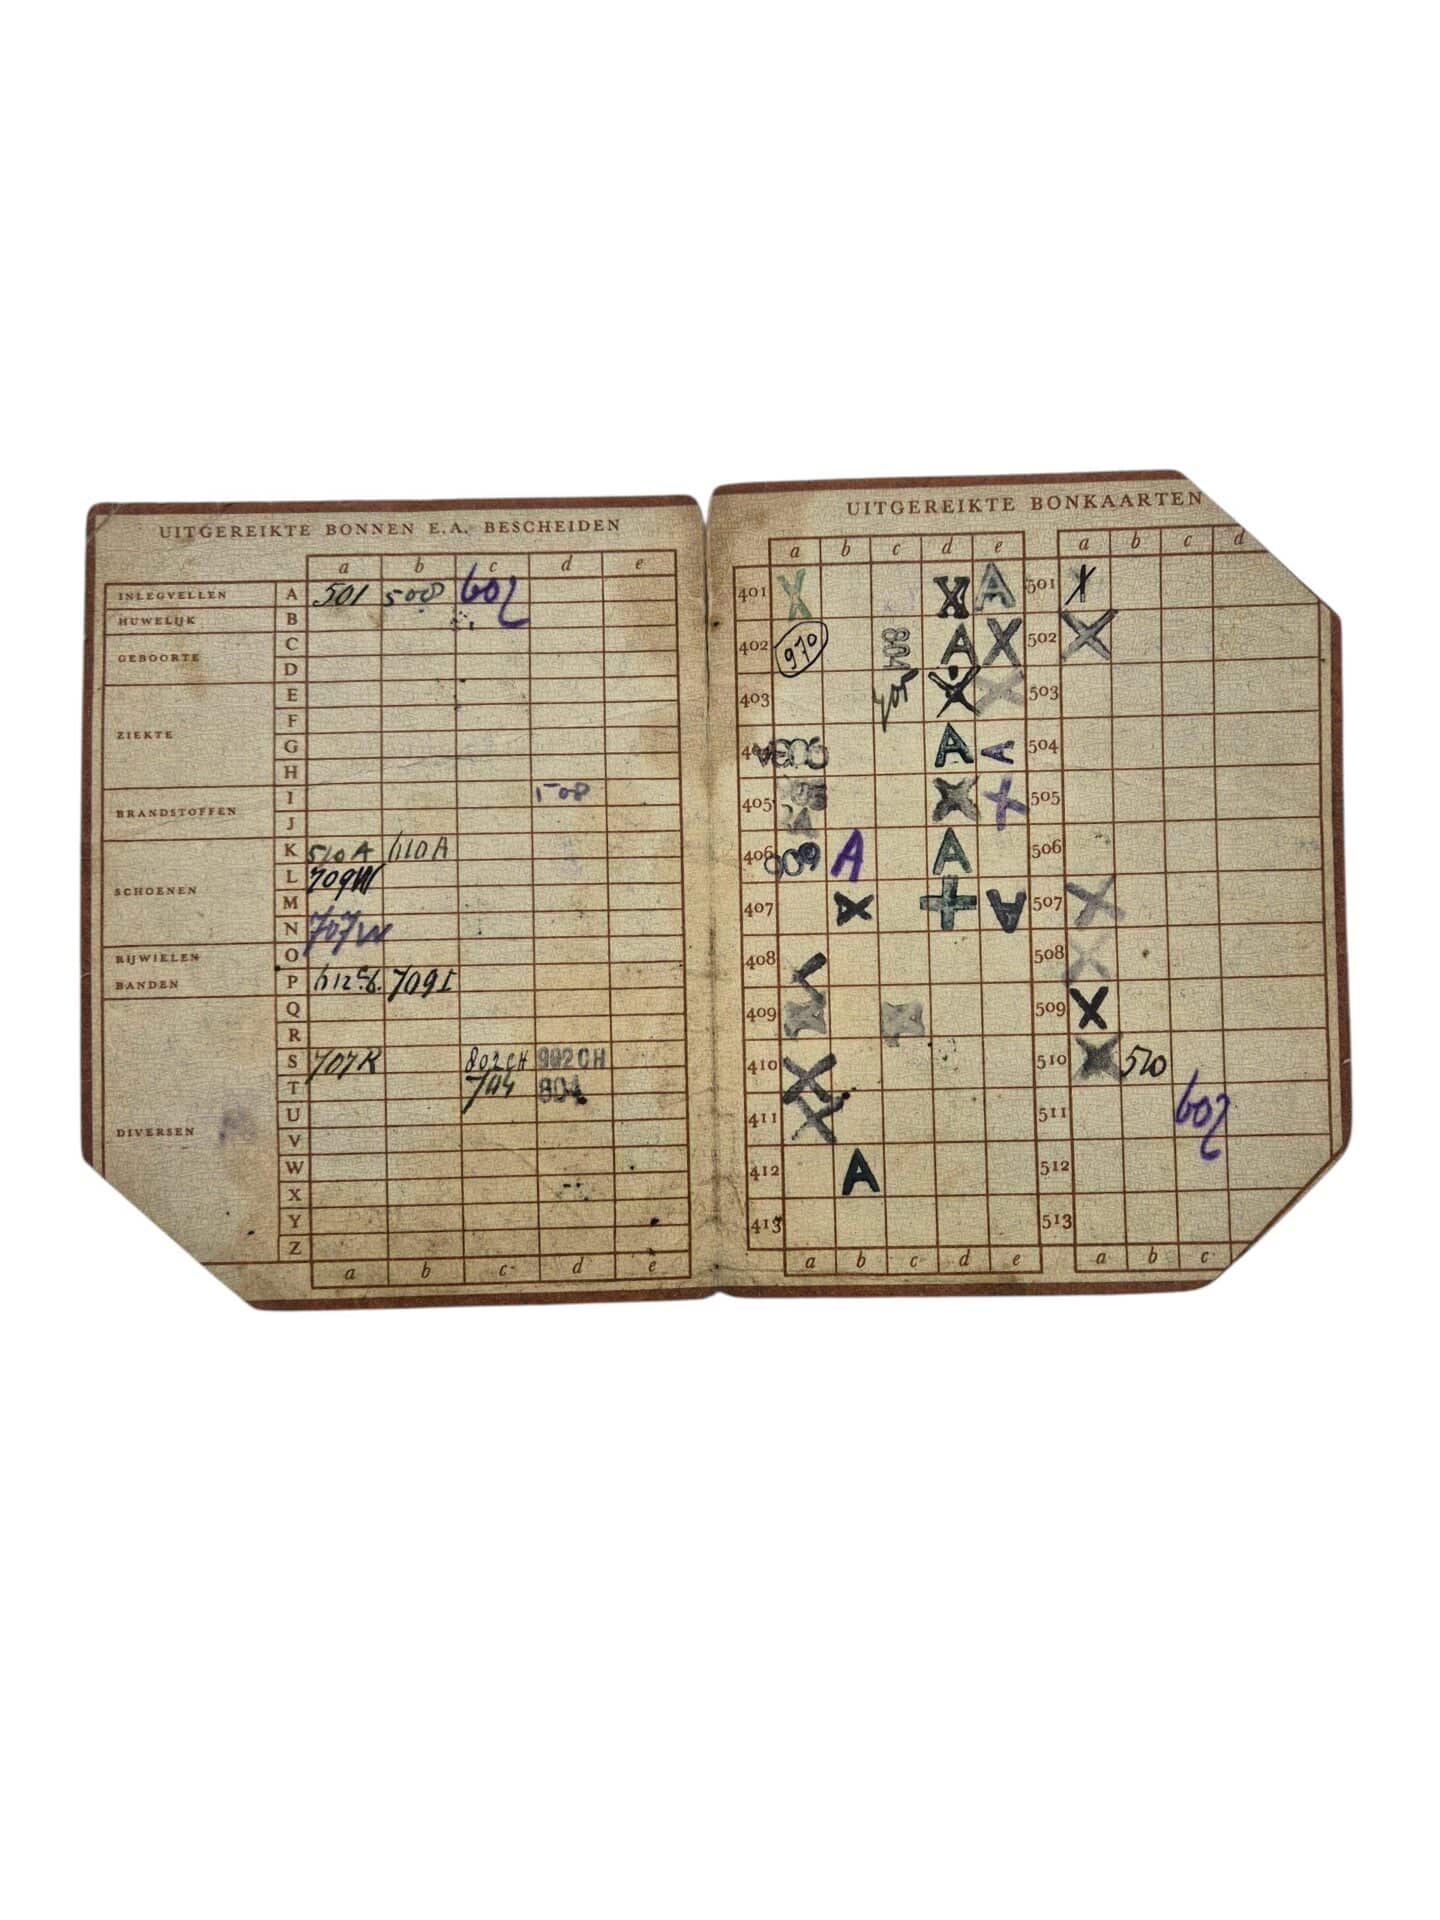 UITGEREIKTE BONNEN E.A. BESCHEIDEN
a b c d e
INLEGVELLEN A 501 508 602
HUWELIJK B
C
GEBOORTE
D
E
F
ZIEKTE
G
H
I 508
BRANDSTOFFEN
J
K 510A 610A
L 709W
SCHOENEN
M
N 707W
RIJWIELEN O
BANDEN P 709I
Q
R
S 707R 802CH 902CH
T 704 804
U
DIVERSEN V
W
X
Y
Z
a b c d e
UITGEREIKTE BONKAARTEN
a b c d e a b c d
401 X X A 501 X
402 970 804 A X 502 X
403 X X 503
A A 504
405 X X 505
406 909 A A 506
407 X + A 507 X
408 508 X
409 X X 509 X
410 X 510 X 510
411 X 511 602
412 A 512
413 513
a b c d e a b c